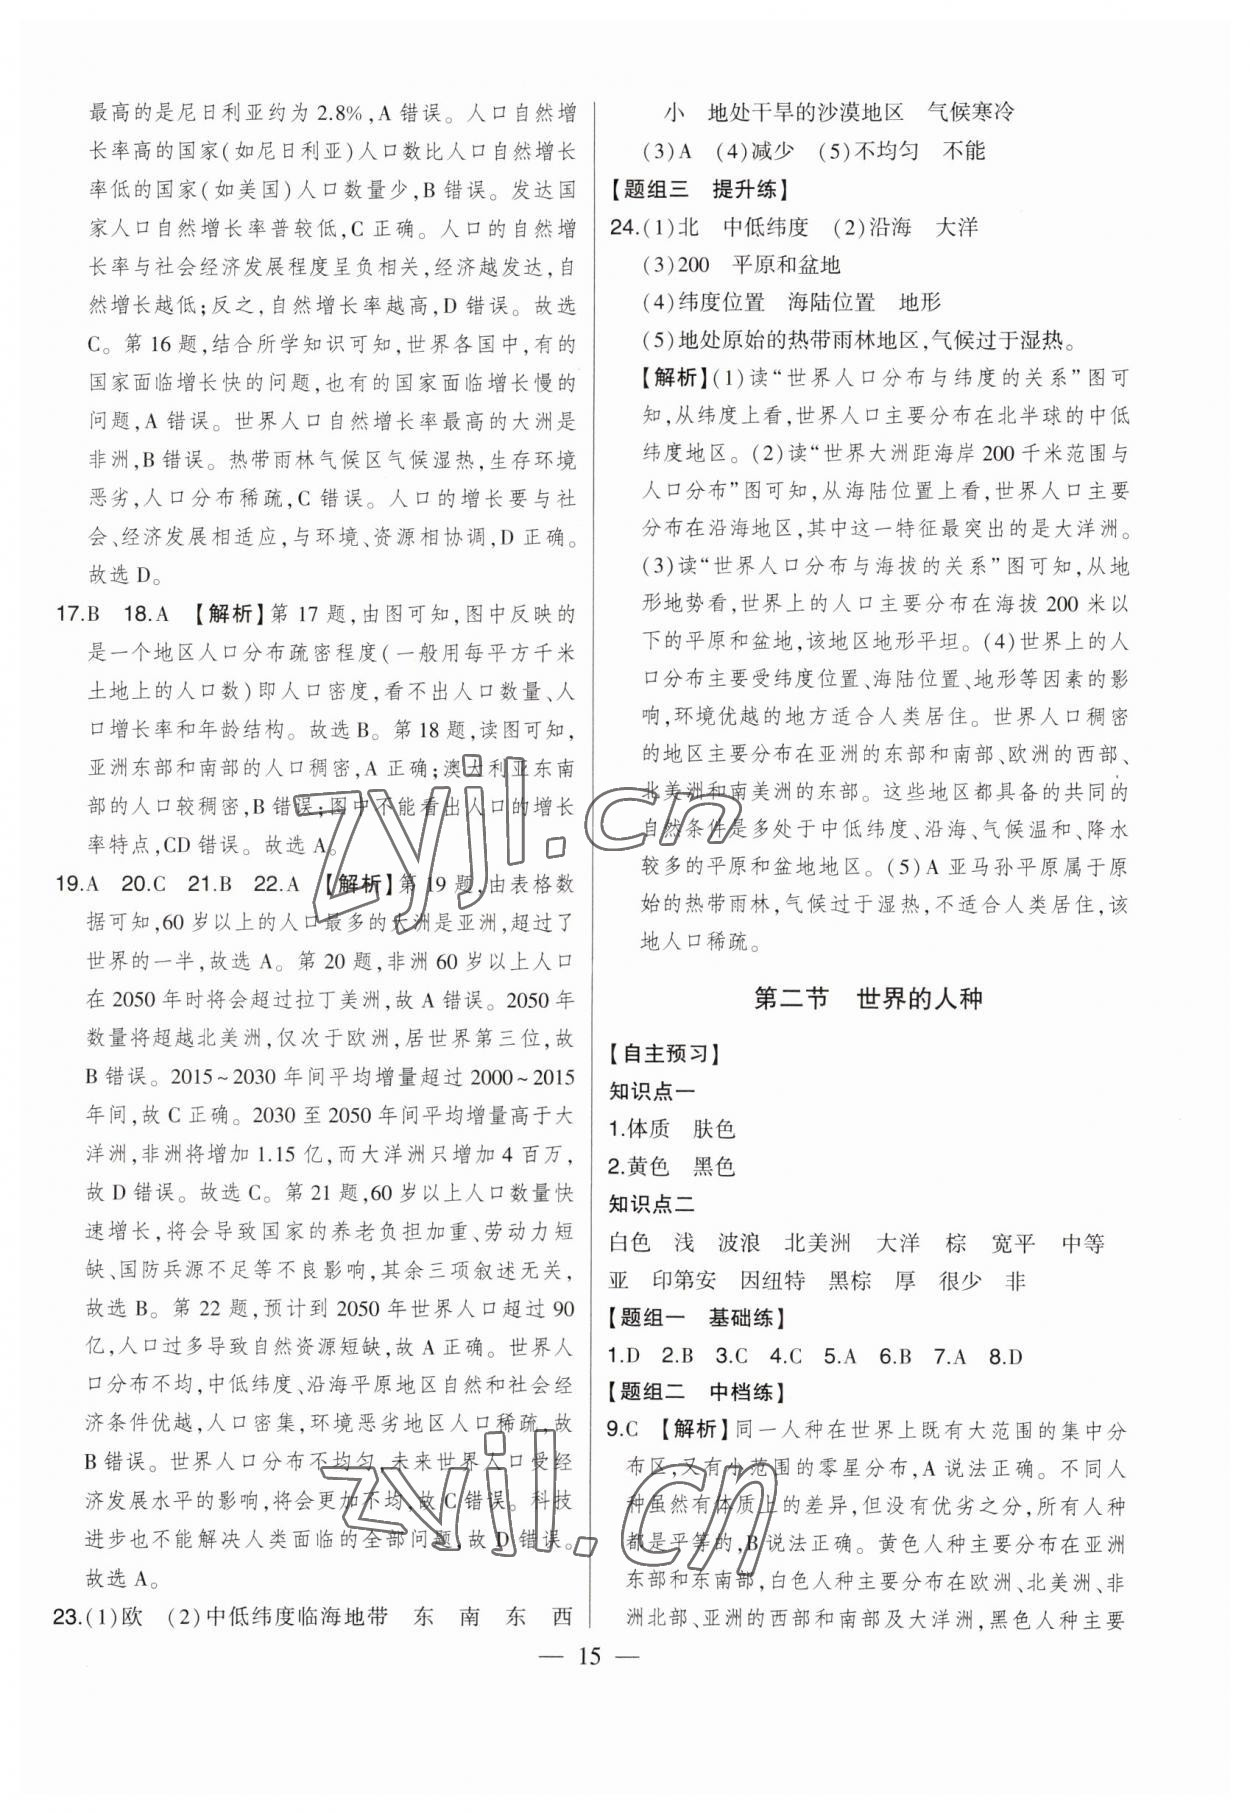 最高的是尼日利亚约为 2.8%,A 错误。人口自然增
长率高的国家(如尼日利亚)人口数比人口自然增长
率低的国家(如美国)人口数量少,B 错误。发达国
家人口自然增长率普较低,C 正确。人口的自然增
长率与社会经济发展程度呈负相关,经济越发达,自
然增长越低;反之,自然增长率越高,D 错误。故选
C。第 16 题,结合所学知识可知,世界各国中,有的
国家面临增长快的问题,也有的国家面临增长慢的
问题,A 错误。世界人口自然增长率最高的大洲是
非洲,B 错误。热带雨林气候区气候湿热,生存环境
恶劣,人口分布稀疏,C 错误。人口的增长要与社
会、经济发展相适应,与环境、资源相协调,D 正确。
故选 D。
17.B 18.A 【解析】第 17 题,由图可知,图中反映的
是一个地区人口分布疏密程度(一般用每平方千米
土地上的人口数)即人口密度,看不出人口数量、人
口增长率和年龄结构。故选 B。第 18 题,读图可知,
亚洲东部和南部的人口稠密,A 正确;澳大利亚东南
部的人口较稠密,B 错误;图中不能看出人口的增长
率特点,CD 错误。故选 A。
19.A 20.C 21.B 22.A 【解析】第 19 题,由表格数
据可知,60 岁以上的人口最多的大洲是亚洲,超过了
世界的一半,故选 A。第 20 题,非洲 60 岁以上人口
在 2050 年时将会超过拉丁美洲,故 A 错误。2050 年
数量将超越北美洲,仅次于欧洲,居世界第三位,故
B 错误。2015~2030 年间平均增量超过 2000~2015
年间,故 C 正确。2030 至 2050 年间平均增量高于大
洋洲,非洲将增加 1.15 亿,而大洋洲只增加 4 百万,
故 D 错误。故选 C。第 21 题,60 岁以上人口数量快
速增长,将会导致国家的养老负担加重、劳动力短
缺、国防兵源不足等不良影响,其余三项叙述无关,
故选 B。第 22 题,预计到 2050 年世界人口超过 90
亿,人口过多导致自然资源短缺,故 A 正确。世界人
口分布不均,中低纬度、沿海平原地区自然和社会经
济条件优越,人口密集,环境恶劣地区人口稀疏,故
B 错误。世界人口分布不均匀,未来世界人口受经
济发展水平的影响,将会更加不均,故 C 错误。科技
进步也不能解决人类面临的全部问题,故 D 错误。
故选 A。
23.(1)欧 (2)中低纬度临海地带 东 南 东 西
小 地处干旱的沙漠地区 气候寒冷
(3)A (4)减少 (5)不均匀 不能
【题组三 提升练】
24.(1)北 中低纬度 (2)沿海 大洋
(3)200 平原和盆地
(4)纬度位置 海陆位置 地形
(5)地处原始的热带雨林地区,气候过于湿热。
【解析】(1)读“世界人口分布与纬度的关系”图可
知,从纬度上看,世界人口主要分布在北半球的中低
纬度地区。(2)读“世界大洲距海岸 200 千米范围与
人口分布”图可知,从海陆位置上看,世界人口主要
分布在沿海地区,其中这一特征最突出的是大洋洲。
(3)读“世界人口分布与海拔的关系”图可知,从地
形地势看,世界上的人口主要分布在海拔 200 米以
下的平原和盆地,该地区地形平坦。(4)世界上的人
口分布主要受纬度位置、海陆位置、地形等因素的影
响,环境优越的地方适合人类居住。世界人口稠密
的地区主要分布在亚洲的东部和南部、欧洲的西部、
北美洲和南美洲的东部。这些地区都具备的共同的
自然条件是多处于中低纬度、沿海、气候温和、降水
较多的平原和盆地地区。(5)A 亚马孙平原属于原
始的热带雨林,气候过于湿热,不适合人类居住,该
地人口稀疏。
第二节 世界的人种
【自主预习】
知识点一
1.体质 肤色
2.黄色 黑色
知识点二
白色 浅 波浪 北美洲 大洋 棕 宽平 中等
亚 印第安 因纽特 黑棕 厚 很少 非
【题组一 基础练】
1.D 2.B 3.C 4.C 5.A 6.B 7.A 8.D
【题组二 中档练】
9.C 【解析】同一人种在世界上既有大范围的集中分
布区,又有小范围的零星分布,A 说法正确。不同人
种虽然有体质上的差异,但没有优劣之分,所有人种
都是平等的,B说法正确。黄色人种主要分布在亚洲
东部和东南部,白色人种主要分布在欧洲、北美洲、非
洲北部、亚洲的西部和南部及大洋洲,黑色人种主要
— 15 —
zyjl.cn
zyjl.cn